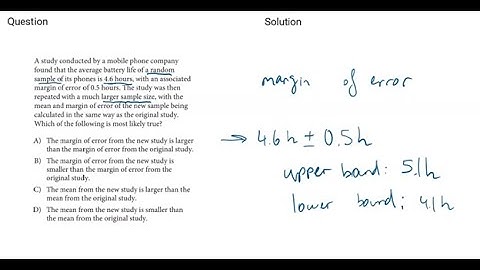 Question
Solution
A study conducted by a mobile phone company
found that the average battery life of a random
sample of its phones is 4.6 hours, with an associated
margin of error of 0.5 hours. The study was then
repeated with a much larger sample size, with the
mean and margin of error of the new sample being
calculated in the same way as the original study.
Which of the following is most likely true?
A) The margin of error from the new study is larger
than the margin of error from the original study.
B) The margin of error from the new study is
smaller than the margin of error from the
original study.
C) The mean from the new study is larger than the
mean from the original study.
D) The mean from the new study is smaller than
the mean from the original study.
margin of error
→ 4.6 h ± 0.5 h
upper band: 5.1h
lower bound; 4.1 h